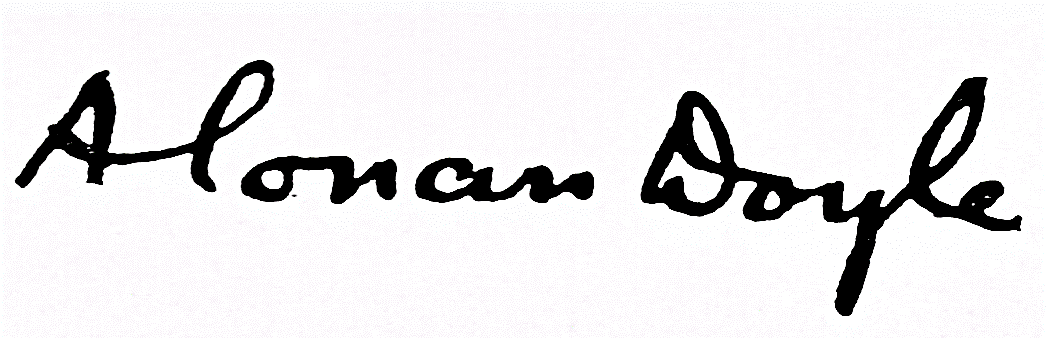 A Conan Doyle